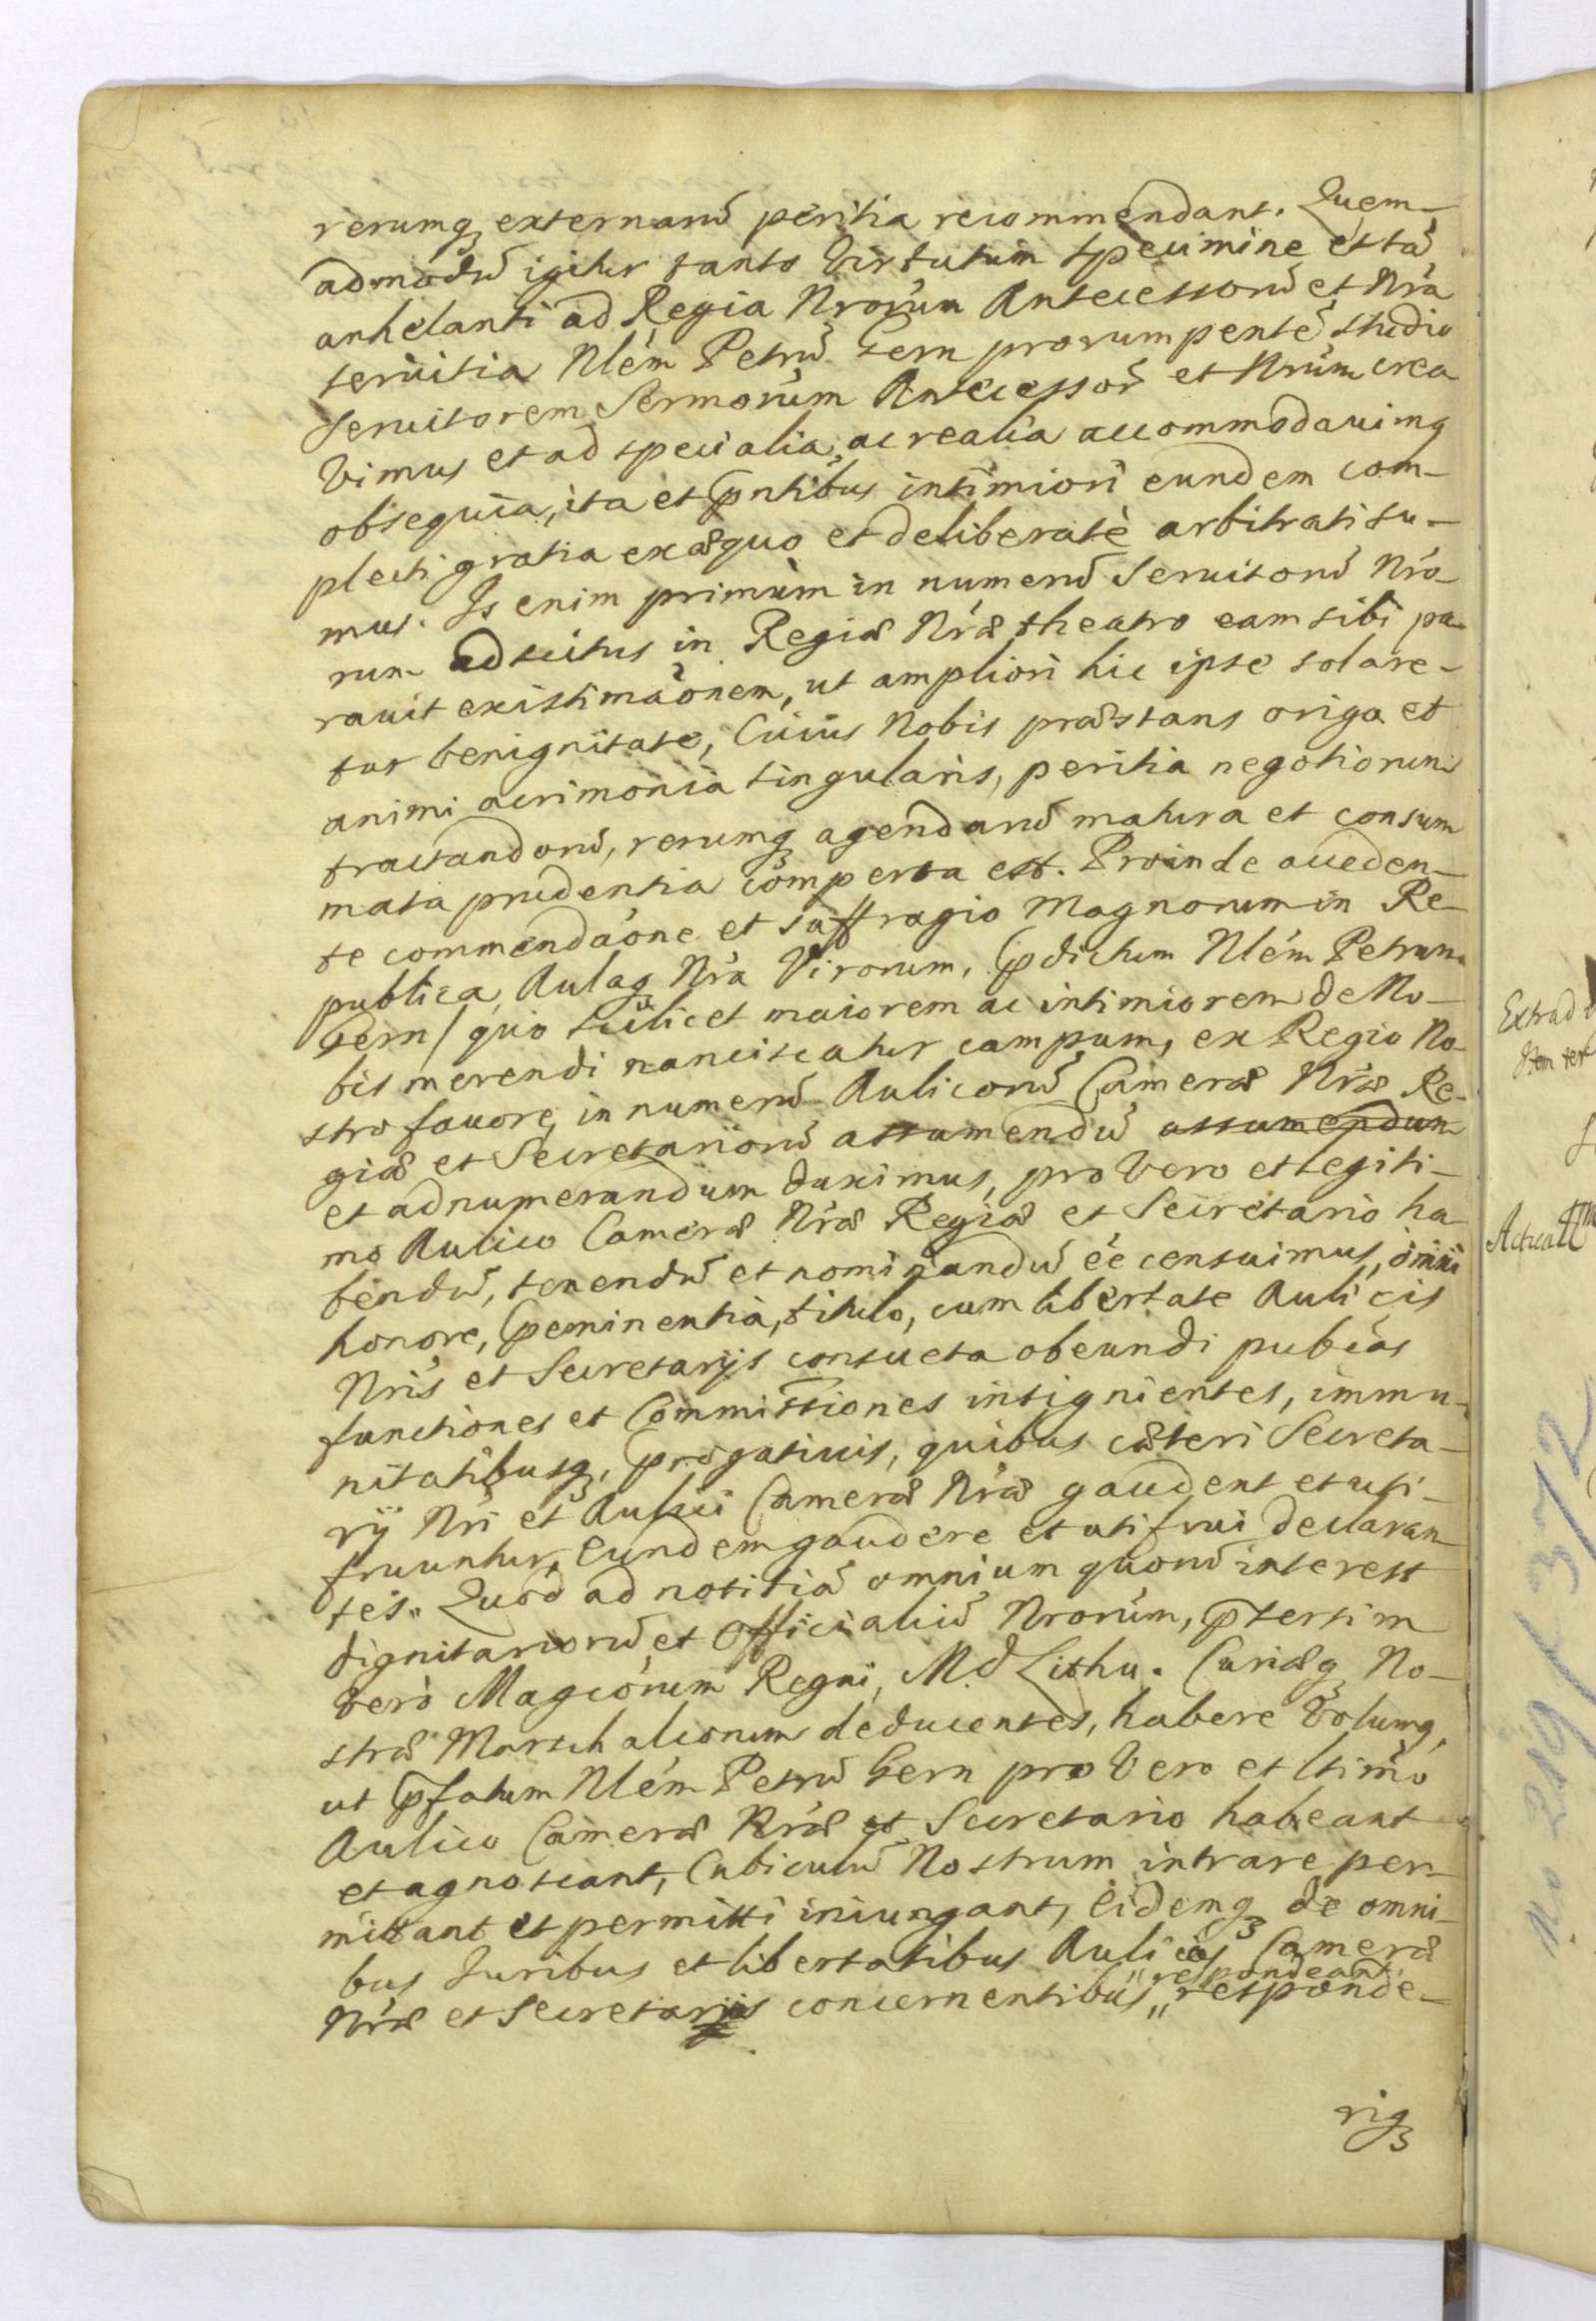 rerumq̃ externarũ peritia recommendant. Quem-
admodũ igitur tanto Virtutum specimine et tã
anhelanti ad Regia Nrorum Antecessorũ et Nra
servitia Nlem Petrũ Gern prorumpentẽ studio
Servitorem Sermorum Antecessorũ et Nrum crea
vimus et ad specialia, ac realia accommodavimq
obsequia, ita et pntibus intimiori eundem com-
plecti gratia ex æquo et deliberatè arbitrati su-
mus. Is enim primùm in numerũ Servitorũ Nro-
rum adscitus in Regiæ Nræ theatro eam sibi pa-
ravit existimaonem, ut ampliori hic ipse solare-
tur benignitate, Cuius Nobis præstans origa et
animi acrimonia singularis, peritia negotiorum
tractandorũ, rerumq̃ agendarũ matura et consum
mata prudentia comperta est. Proinde acceden-
te commendaone et suffragio Magnorum in Re-
publica, Aulaq̃ Nra Virorum, pdictum Nlem Petrum
Gern / quo scilicet maiorem ac intimiorem de No-
bis merendi nanciscatur campum, ex Regio No-
stro favore, in numerũ Aulicorũ Cameræ Nræ Re-
giæ et Secretariorũ assumendũ assumendum
et adnumerandum duximus, pro Vero et legiti-
mo Aulico Cameræ Nræ Regiæ et Secretario ha-
bendũ, tenendũ et nominandũ ee censuimus, omni
honore, peminentia, titulo, cum libertate Aulicis
Nris et Secretarijs consueta obeundi pubcas
functiones et Commissiones insignientes, immu-
nitatibusq̃, prògativis, quibus cæteri Secreta-
rij Nri et Aulici Cameræ Nræ gaudent et uti-
fruuntur, Eundem gaudere et uti frui declaran
tes. Quod ad notitiã omnium quorũ interest
dignitariorũ et Officialiũ Nrorum, ptersim
verò Magcorum Regni, M. D Lithu. Curiæq̃ No-
stræ Marschalcorum deducentes, habere Volumq,
ut pfatum Nlem Petrũ Gern pro Vero et ltimo
Aulico Cameræ Nræ et Secretario habeant
et agnoscant, Cubiculũ Nostrum intrare per-
mittant et permitti iniungant, Eidemq̃ de omni-
bus Juribus et libertatibus Aulicis Cameræ
respondeant
Nræ et Secretarijs concernentibus „ responde-
riq̃
Extrad
Item
Actual
No 219 / 372